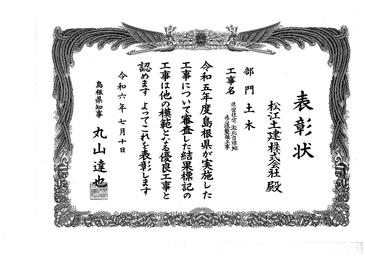 表彰状
松江土建株式会社 殿
部門 土木
工事名
令和五年度島根県が実施した
工事について審査した結果標記の
工事は他の模範となる優良工事と
認めます よってこれを表彰します
令和六年七月十日
島根県知事 丸山達也